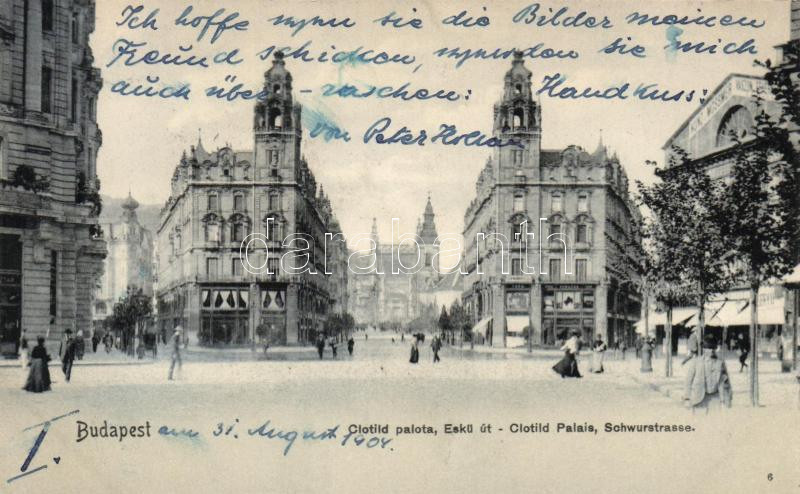 Ich hoffe wenn sie die Bilder meinen
Freund schicken, werden sie mich
auch über-raschen: Handkuss:
von Peter
darabanth
Budapest am 31. August 1904.
Clotild palota, Eskü út - Clotild Palais, Schwurstrasse.
I.
6